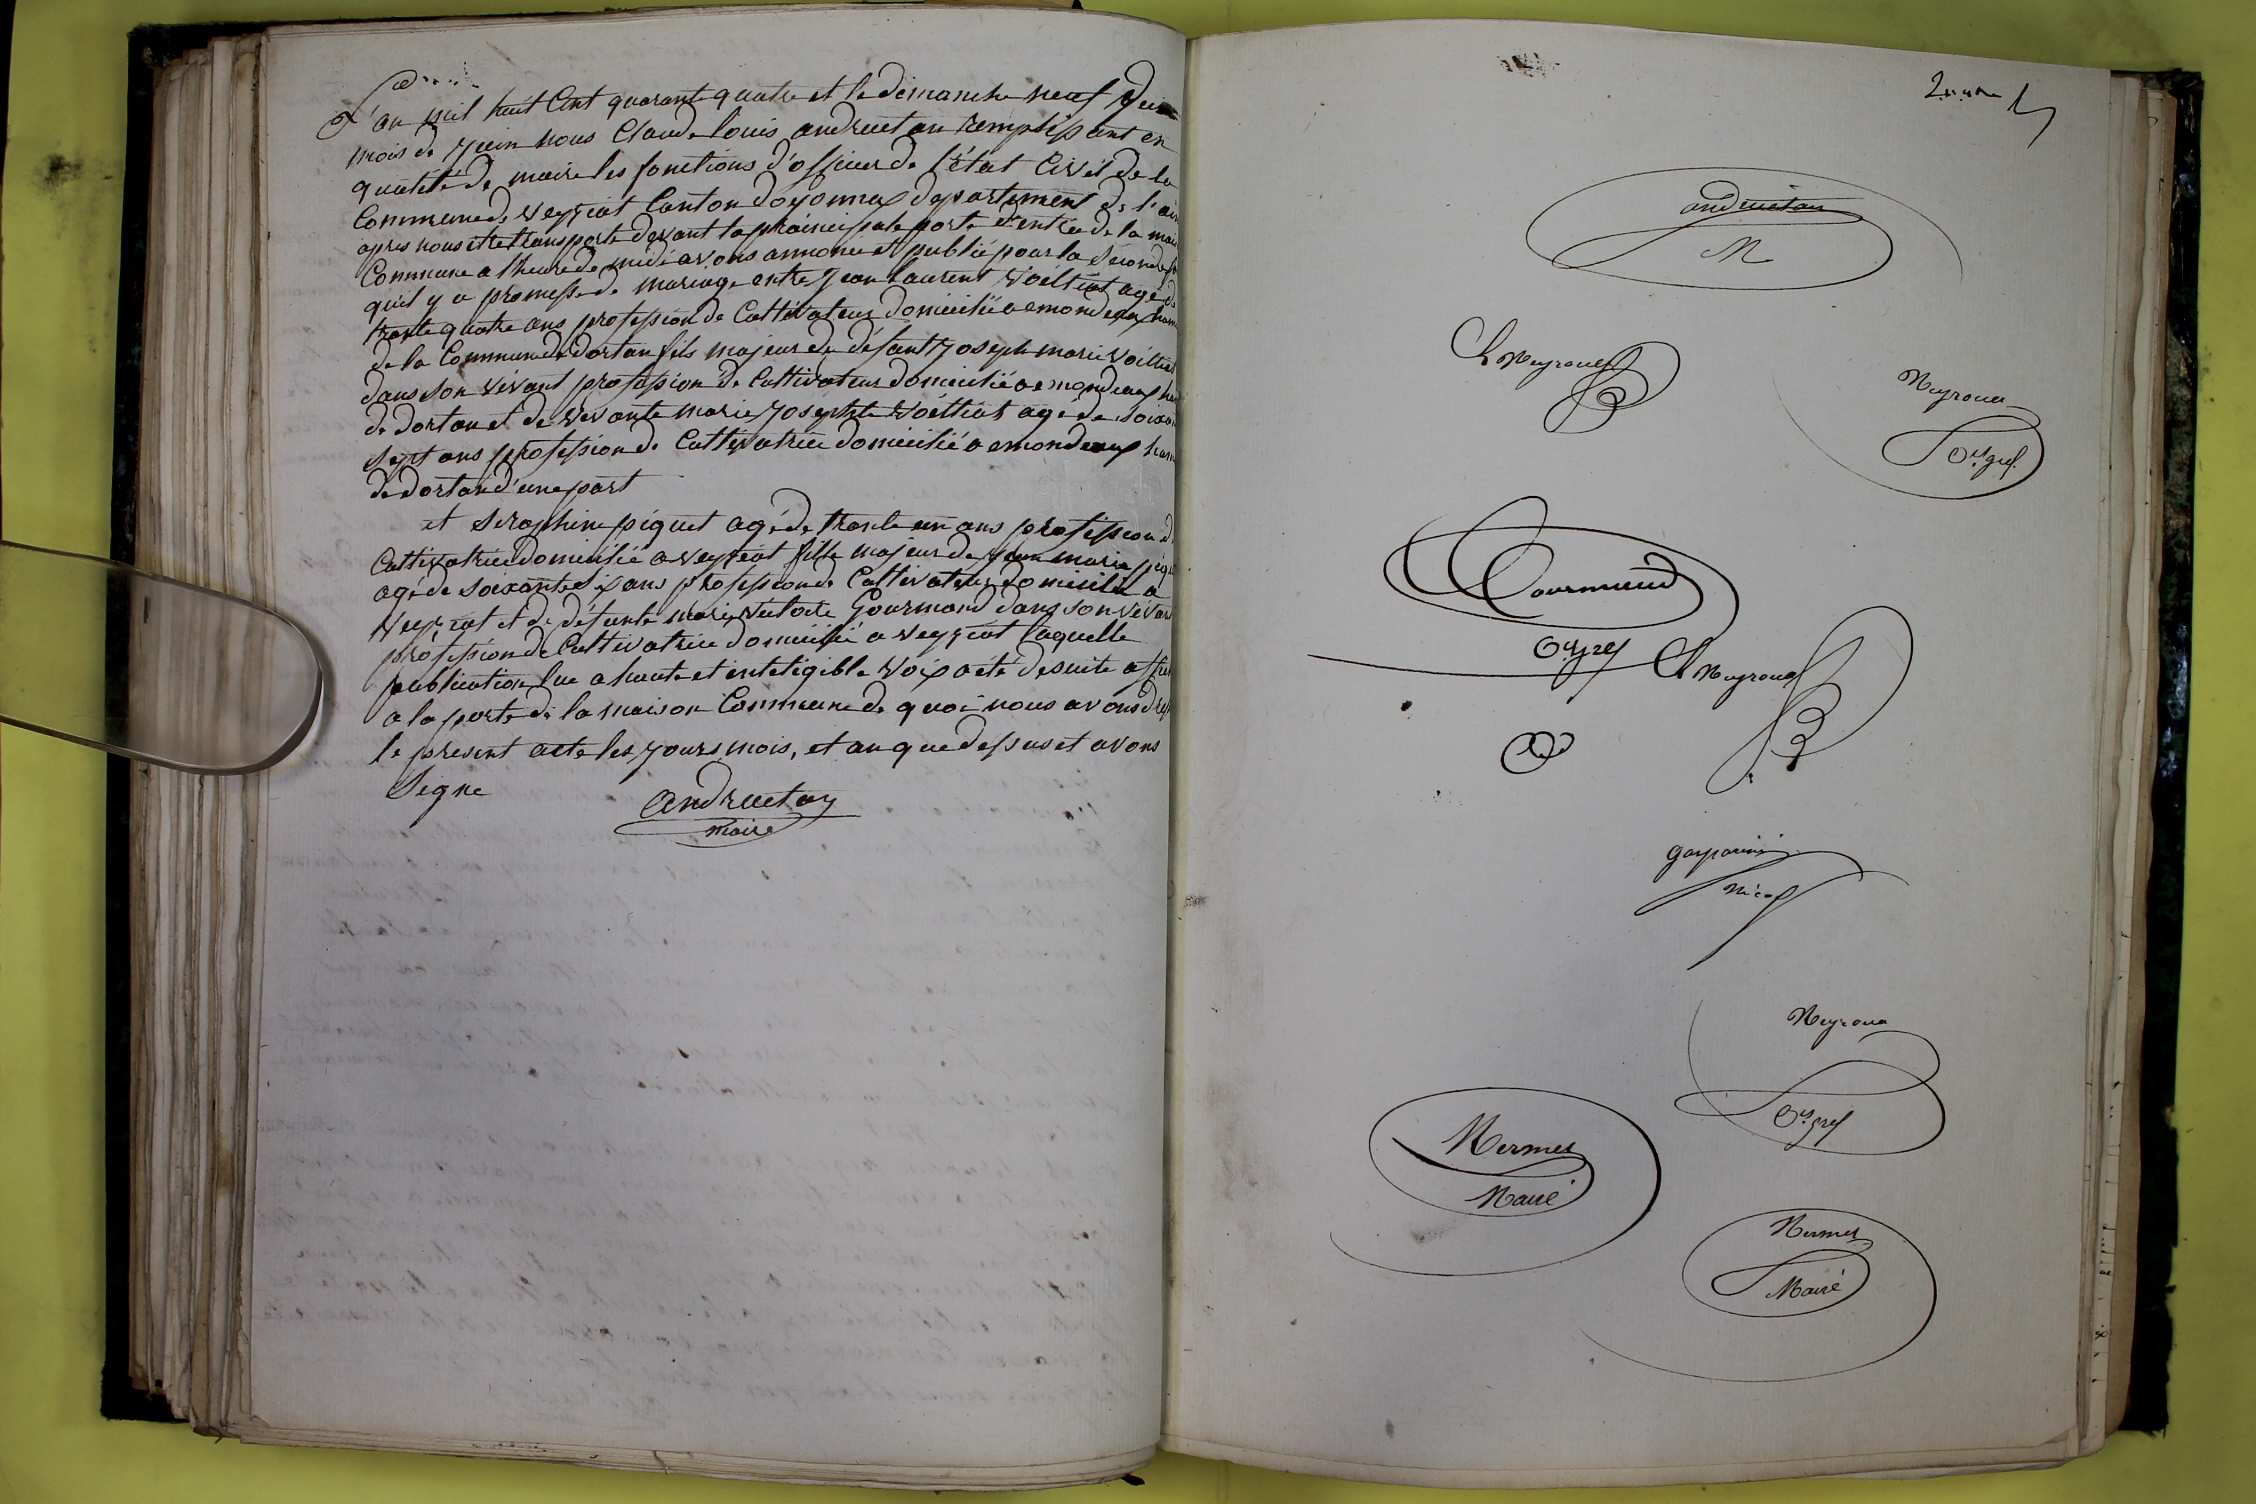 L'an mil huit Cent quarante quatre et le dimanche neuf du
mois de juin nous Claude louis andruetan remplissant en
qualité de maire les fonctions d'officier de l'état Civil de la
Commune de veyziat Canton doyonnax departement de l'ain
apres nous etre transporte devant la principale porte d'entrée de la mai
Commune a lheure de midi avons annonce et publié pour la seconde
quil y a promesse de mariage entre jean laurent voilliat agé de
trante quatre ans profession de Cultivateur domicilié a emondeaux ham
de la Commune de dortan fils majeur de défant joseph marie voilliat
dans son vivant profession de Cultivateur domicilié a emondeaux ha
de dortan et de vivante marie josephte voilliat agé de soixan
sept ans profession de Cultivatrice domicilié a emondeaux ham
de dortan d'une part
et seraphine piquet agé de trante un ans profession de
Cultivatrice domicilié a veyziat fille majeur de jean marie piqu
agé de soixante six ans profession de Cultivateur domicilié a
veyziat et de défunte marie victoire Gourmand dans son vivan
profession de Cultivatrice domicilié a veyziat laquelle
publication lue a haute et inteligible voix a été de suite affi
a la porte de la maison Commune de quoi nous avons dre
le present acte les jours mois, et an que dessus et avons
Signe
andruetan
maire
andruetan
M
Neyroud
Gourmand
Neyroud
gasparini
Nermet
Maire
Nermet
Maire